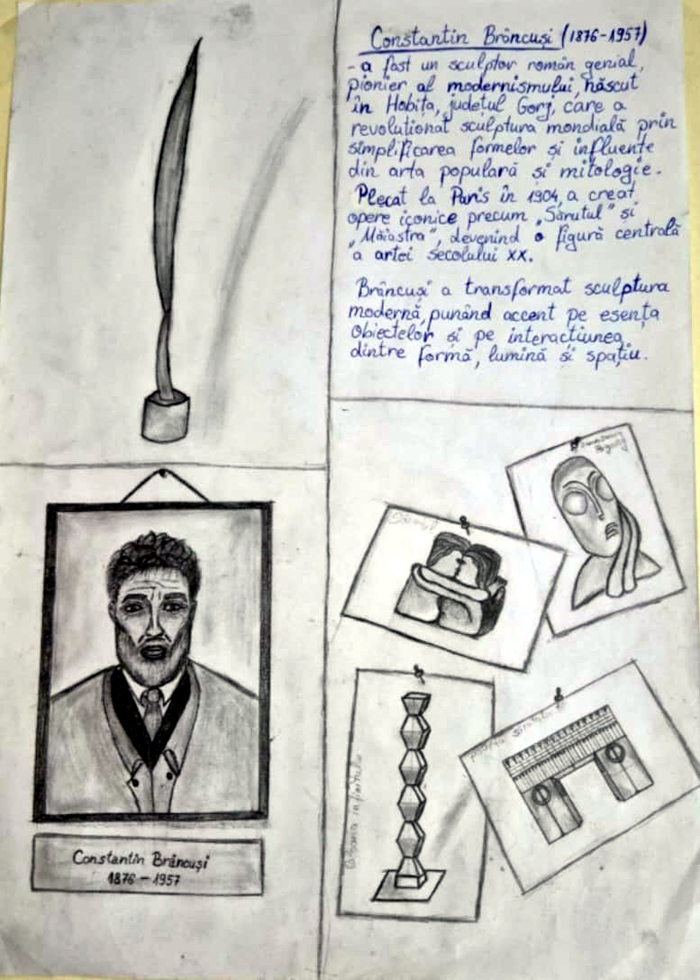 Constantin Brâncuși (1876-1957)
- a fost un sculptor român genial,
pionier al modernismului, născut
în Hobița, județul Gorj, care a
revoluționat sculptura mondială prin
simplificarea formelor și influențe
din arta populară și mitologie.
Plecat la Paris în 1904, a creat
opere iconice precum „Sărutul" și
„Măiastra", devenind o figură centrală
a artei secolului XX.
Brâncuși a transformat sculptura
modernă, punând accent pe esența
obiectelor și pe interacțiunea
dintre formă, lumină și spațiu.
Sărutul
Pogany
Poarta sărutului
Constantin Brâncuși
1876 - 1957